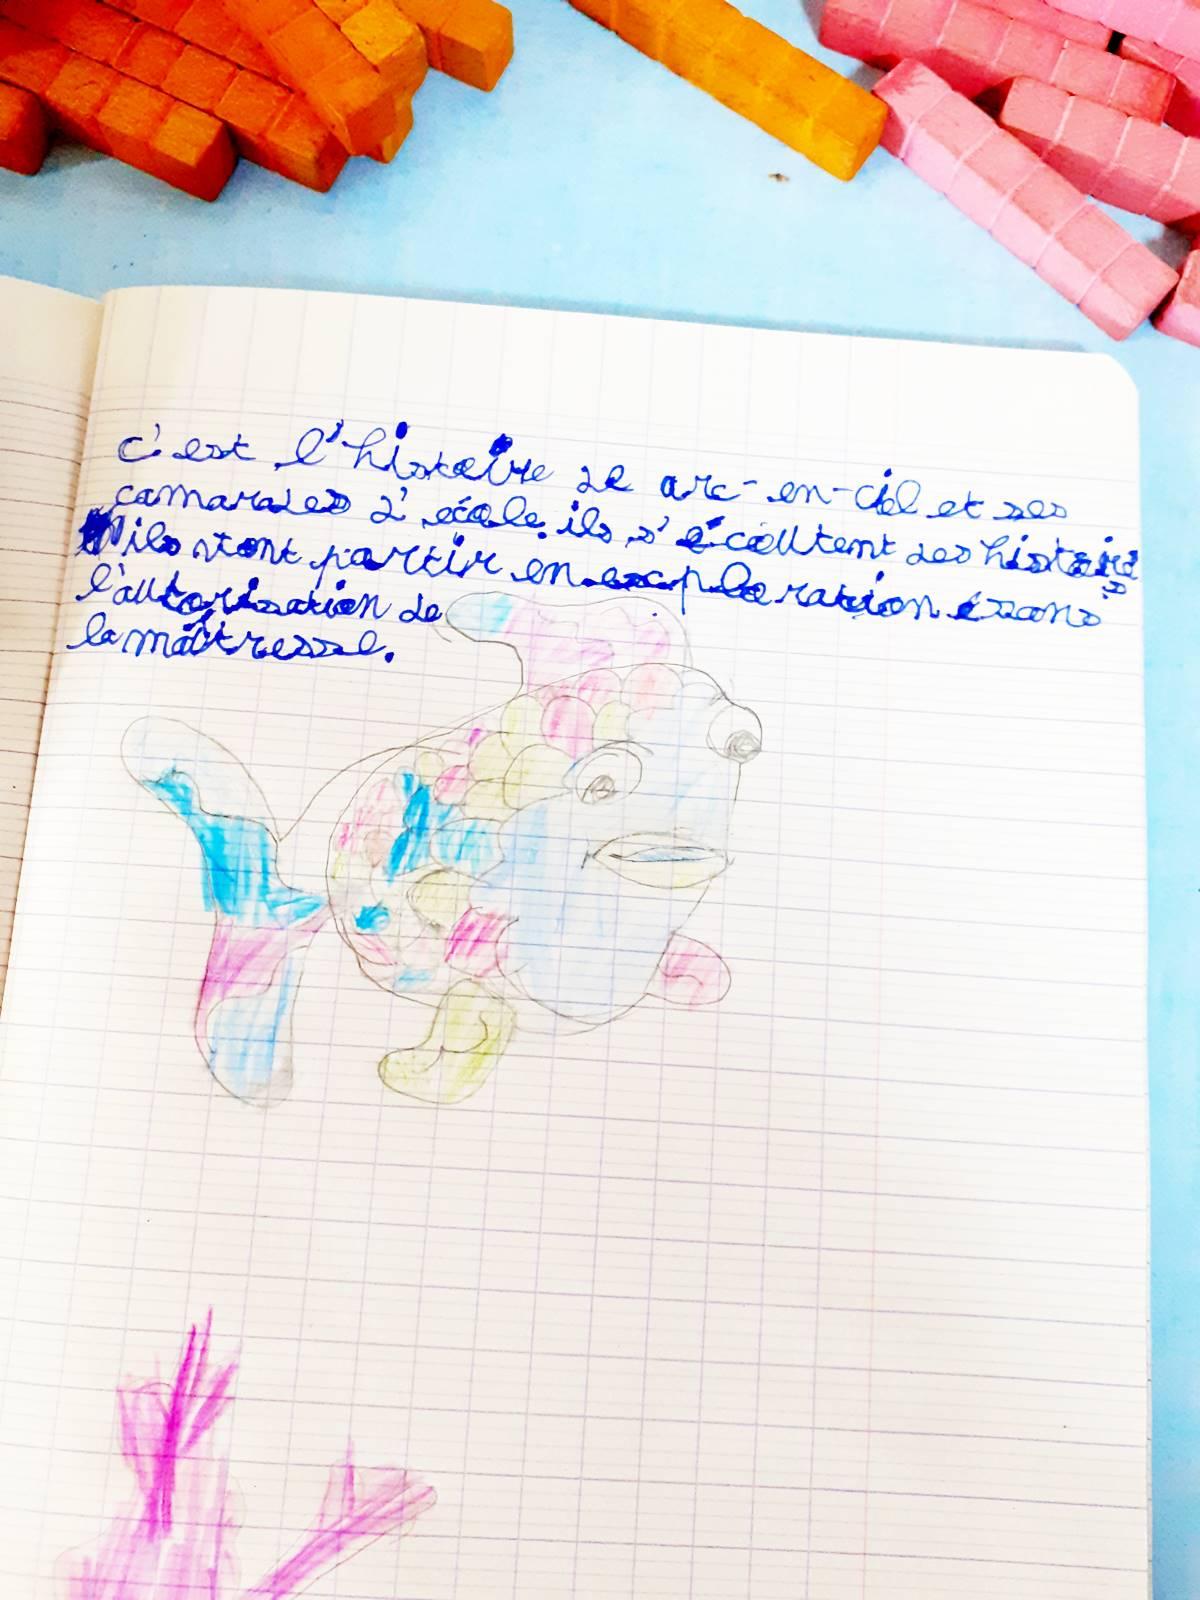 c'est l'histoire de arc-en-ciel et ses
camarades d'école. ils s'écoutent des histoires
ils vont partir en exploration sans
l'autorisation de
la maîtresse.